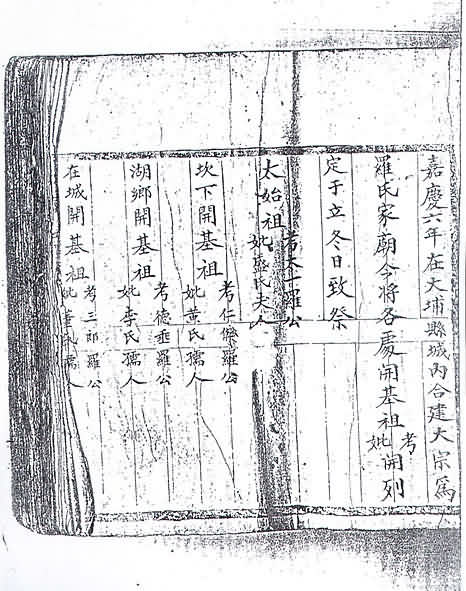 嘉慶六年在大埔縣城內合建大宗為
羅氏家廟今將各處開基祖考妣開列
定于立冬日致祭
太始祖
考大一羅公
妣盛氏夫人
坎下開基祖
考仁傑羅公
妣黃氏孺人
湖鄉開基祖
考德垂羅公
妣李氏孺人
在城開基祖
考三郎羅公
妣 氏孺人